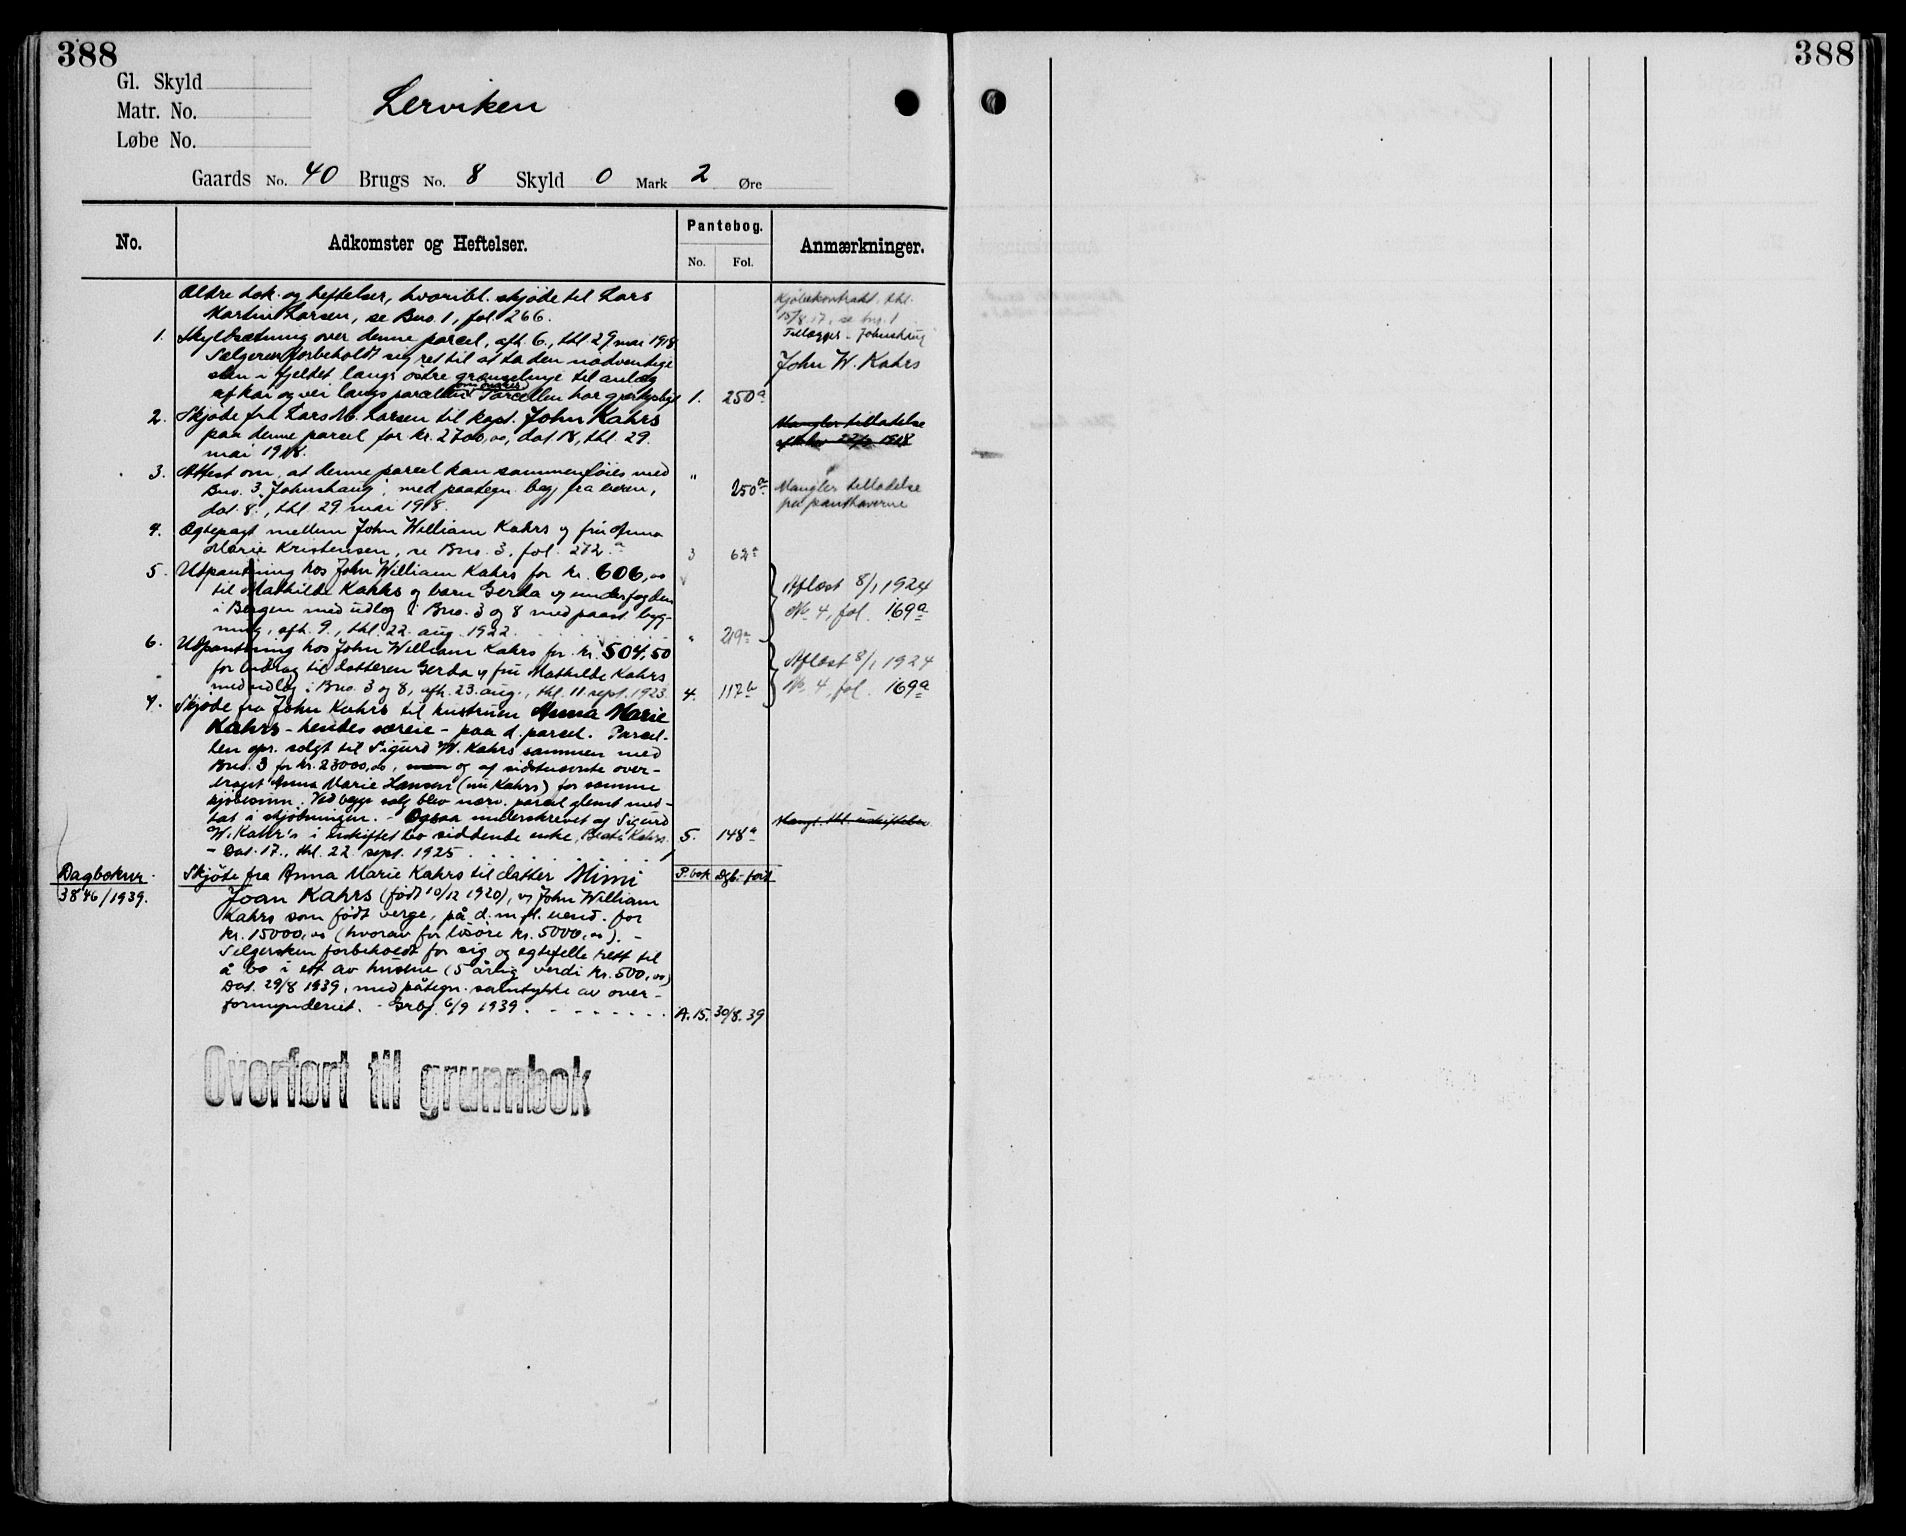 388
388
Gl. Skyld
Matr. No.
Løbe No.
Lerviken
Gaards No. 40 Brugs No. 8 Skyld 0 Mark 2 Øre
No.
Adkomster og Heftelser.
Pantebog.
No. Fol.
Anmærkninger.
Ældre dok. og heftelser, hvoribl. skjøde til Lars
Martin Larsen, se Bno. 1, fol. 266.
Kjøbekontrakt, thl.
15/8.17, se bnr. 1
1. Skyldsætning over denne parcel, afh. 6., thl 29 mai 1918
Tillægges Johnshaug
Sælgeren forbeholdt sig ret til at ta den nødvendige
sten i fjeldet langs østre grænselinje til anlæg
John W. Kahrs
af kai og vei langs parcellen om ønskes Parcellen har gjerdepligt 1. 250a
2. Skjøde fra Lars M. Larsen til kapt. John Kahrs
paa denne parcel for kr. 2700,00, dat 18, thl. 29.
mai 1918.
Mangler tilladelse
3. Attest om, at denne parcel kan sammenføies med
Bno. 3 "Johnshaug", med paategn. beg. fra eieren,
dat. 8., thl. 29 mai 1918.
" 250a
Mangler tilladelse
på panthaverne
4. Ægtepagt mellem John William Kahrs og fru Anna
Marie Kristensen, se Bno. 3, fol. 272a
3 62a
5. Utpantning hos John William Kahrs for kr. 606,00
til Mathilde Kahrs og barn Gerda og underfogden
i Bergen med udlæg i Bno. 3 og 8 med paast. byg-
ning, afh. 9., thl. 22. aug. 1922.
" 219a
Aflæst 8/1 1924
No. 4, fol. 169a
6. Utpantning hos John William Kahrs for kr. 504,50
for bidrag til datteren Gerda og fru Mathilde Kahrs
med udlæg i Bno. 3 og 8, afh. 23. aug., thl. 11. sept. 1923.
4. 112b
Aflæst 8/1 1924
No. 4, fol. 169a
7. Skjøde fra John Kahrs til hustruen Anna Marie
Kahrs - hendes særeie - paa d. parcel. Parcel-
len opr. solgt til Sigurd W. Kahrs sammen med
Bno. 3 for kr. 23000,00, og af sidstnævnte over-
draget Anna Marie Hansen (nu Kahrs) for samme
kjøbesum. Ved begge salg blev nærv. parcel glemt med-
tat i skjøtningen. - Ogsaa underskrevet af Sigurd
W. Kahrs's i uskiftet bo siddende enke, Beate Kahrs.
- Dat. 17., thl. 22. sept. 1925.
5. 148a
Mangl. thl. uskiftebev
Dagboknr.
3846/1939.
P.bok Dgb.-ført
Skjøte fra Anna Marie Kahrs til datter Mimi
Joan Kahrs (født 10/12 1920), v/ John William
Kahrs som født verge, på d. m. fl. eiend. for
kr. 15000,00 (hvorav for løsøre kr. 5000,00). -
Selgersken forbeholdt for sig og egtefelle rett til
å bo i ett av husene (5 årlig verdi kr. 500,00)
Dat. 29/8 1939, med påtegn. samtykke av over-
formynderiet. - Grbf. 6/9 1939.
A.15. 30/8.39
Overført til grunnbok